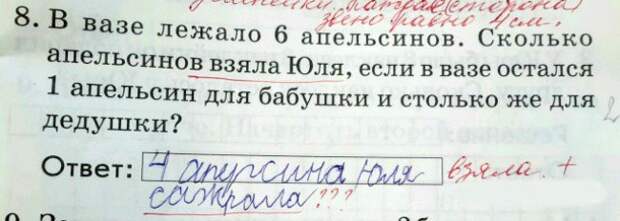 сторона
звено равно 4 см.
8. В вазе лежало 6 апельсинов. Сколько
апельсинов взяла Юля, если в вазе остался
1 апельсин для бабушки и столько же для
дедушки?
2
Ответ: 4 апурсина Юля взяла +
сажрала ???